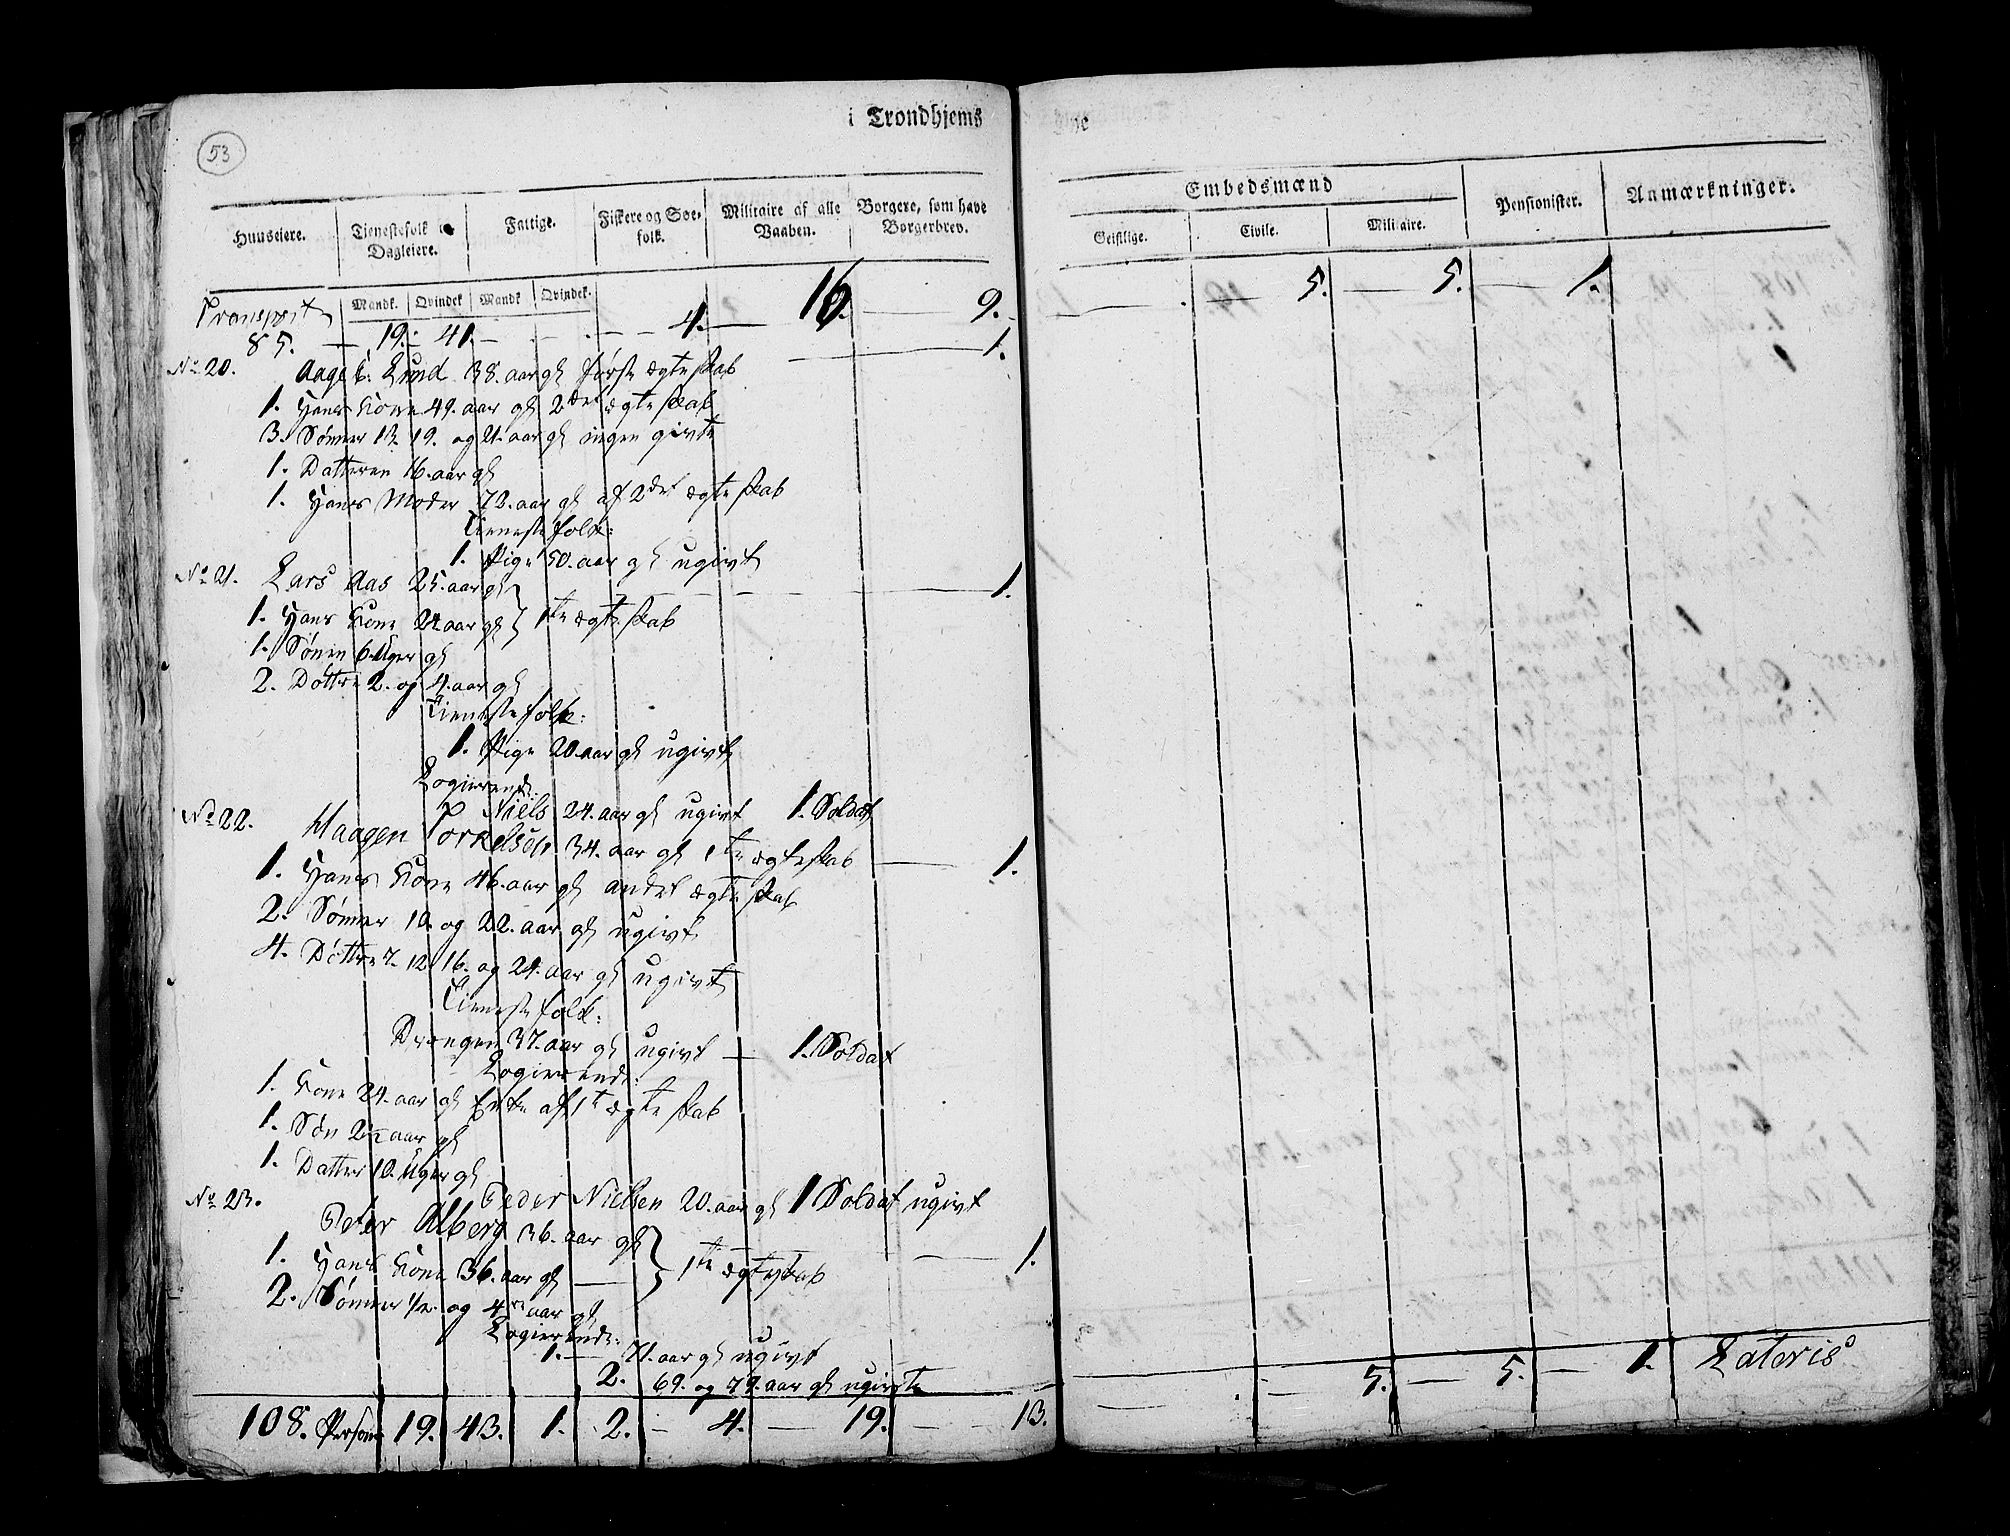 53
i Trondhjems
Huuseiere. Tienestefolk Dagleiere. Fattige. Fiskere og Søefolk. Militaire af alle Vaaben. Borgere, som have Borgerbrev.
Mandk. Qvindek Mandk Qvindek.
Embedsmænd Pensionister. Anmærkninger.
Geistlige. Civile. Militaire.
Transport
85. — 19. — 41. — 4. — 16. — 9. 5. — 5. — 1.
No 20. Aage Lund 38. aar gl første ægteskab — 1.
1. Hans Kone 49. aar gl 2det ægteskab
3. Sønner 13. 19. og 21. aar gl ingen givte
1. Datteren 16. aar gl
1. Hans Moder 72. aar gl af 2det ægteskab
Tienestefolk:
1. Pige 50. aar gl ugivt
No 21. Lars Aas 25. aar gl } — 1.
1. Hans Kone 24 aar gl } 1te ægteskab
1. Sønen 6. Uger gl
2. Døttre 2. og 4. aar gl
Tienestefolk:
1. Pige 20. aar gl ugivt
Logierende:
Niels 24. aar gl ugivt 1. Soldat
No 22. Haagen Torkelsen 34. aar gl 1te ægteskab — 1.
1. Hans Kone 46. aar gl andet ægteskab
2. Sønner 10. og 22. aar gl ugivt
4. Døttre 7. 12. 16. og 24. aar gl ugivt
Tienestefolk:
Drengen 37. aar gl ugivt — 1. Soldat
Logierende:
1. Kone 24. aar gl Enke af 1te ægteskab
1. Søn 2 1/2 aar gl
1. Datter 10. Uger gl
Peder Nielsen 20. aar gl 1 Soldat ugivt
No 23. Peter Alberg 36. aar gl } — 1.
1. Hans Kone 36. aar gl — } 1te ægteskab
2. Sønner 1/2. og 4 aar gl
Logierende:
1. — 71. aar gl ugivt
2. 69. og 79. aar gl ugivte
108. Persone 19. 43. 1. 2. — 4. — 19. — 13.
— 5. — 5. — 1. Lateris